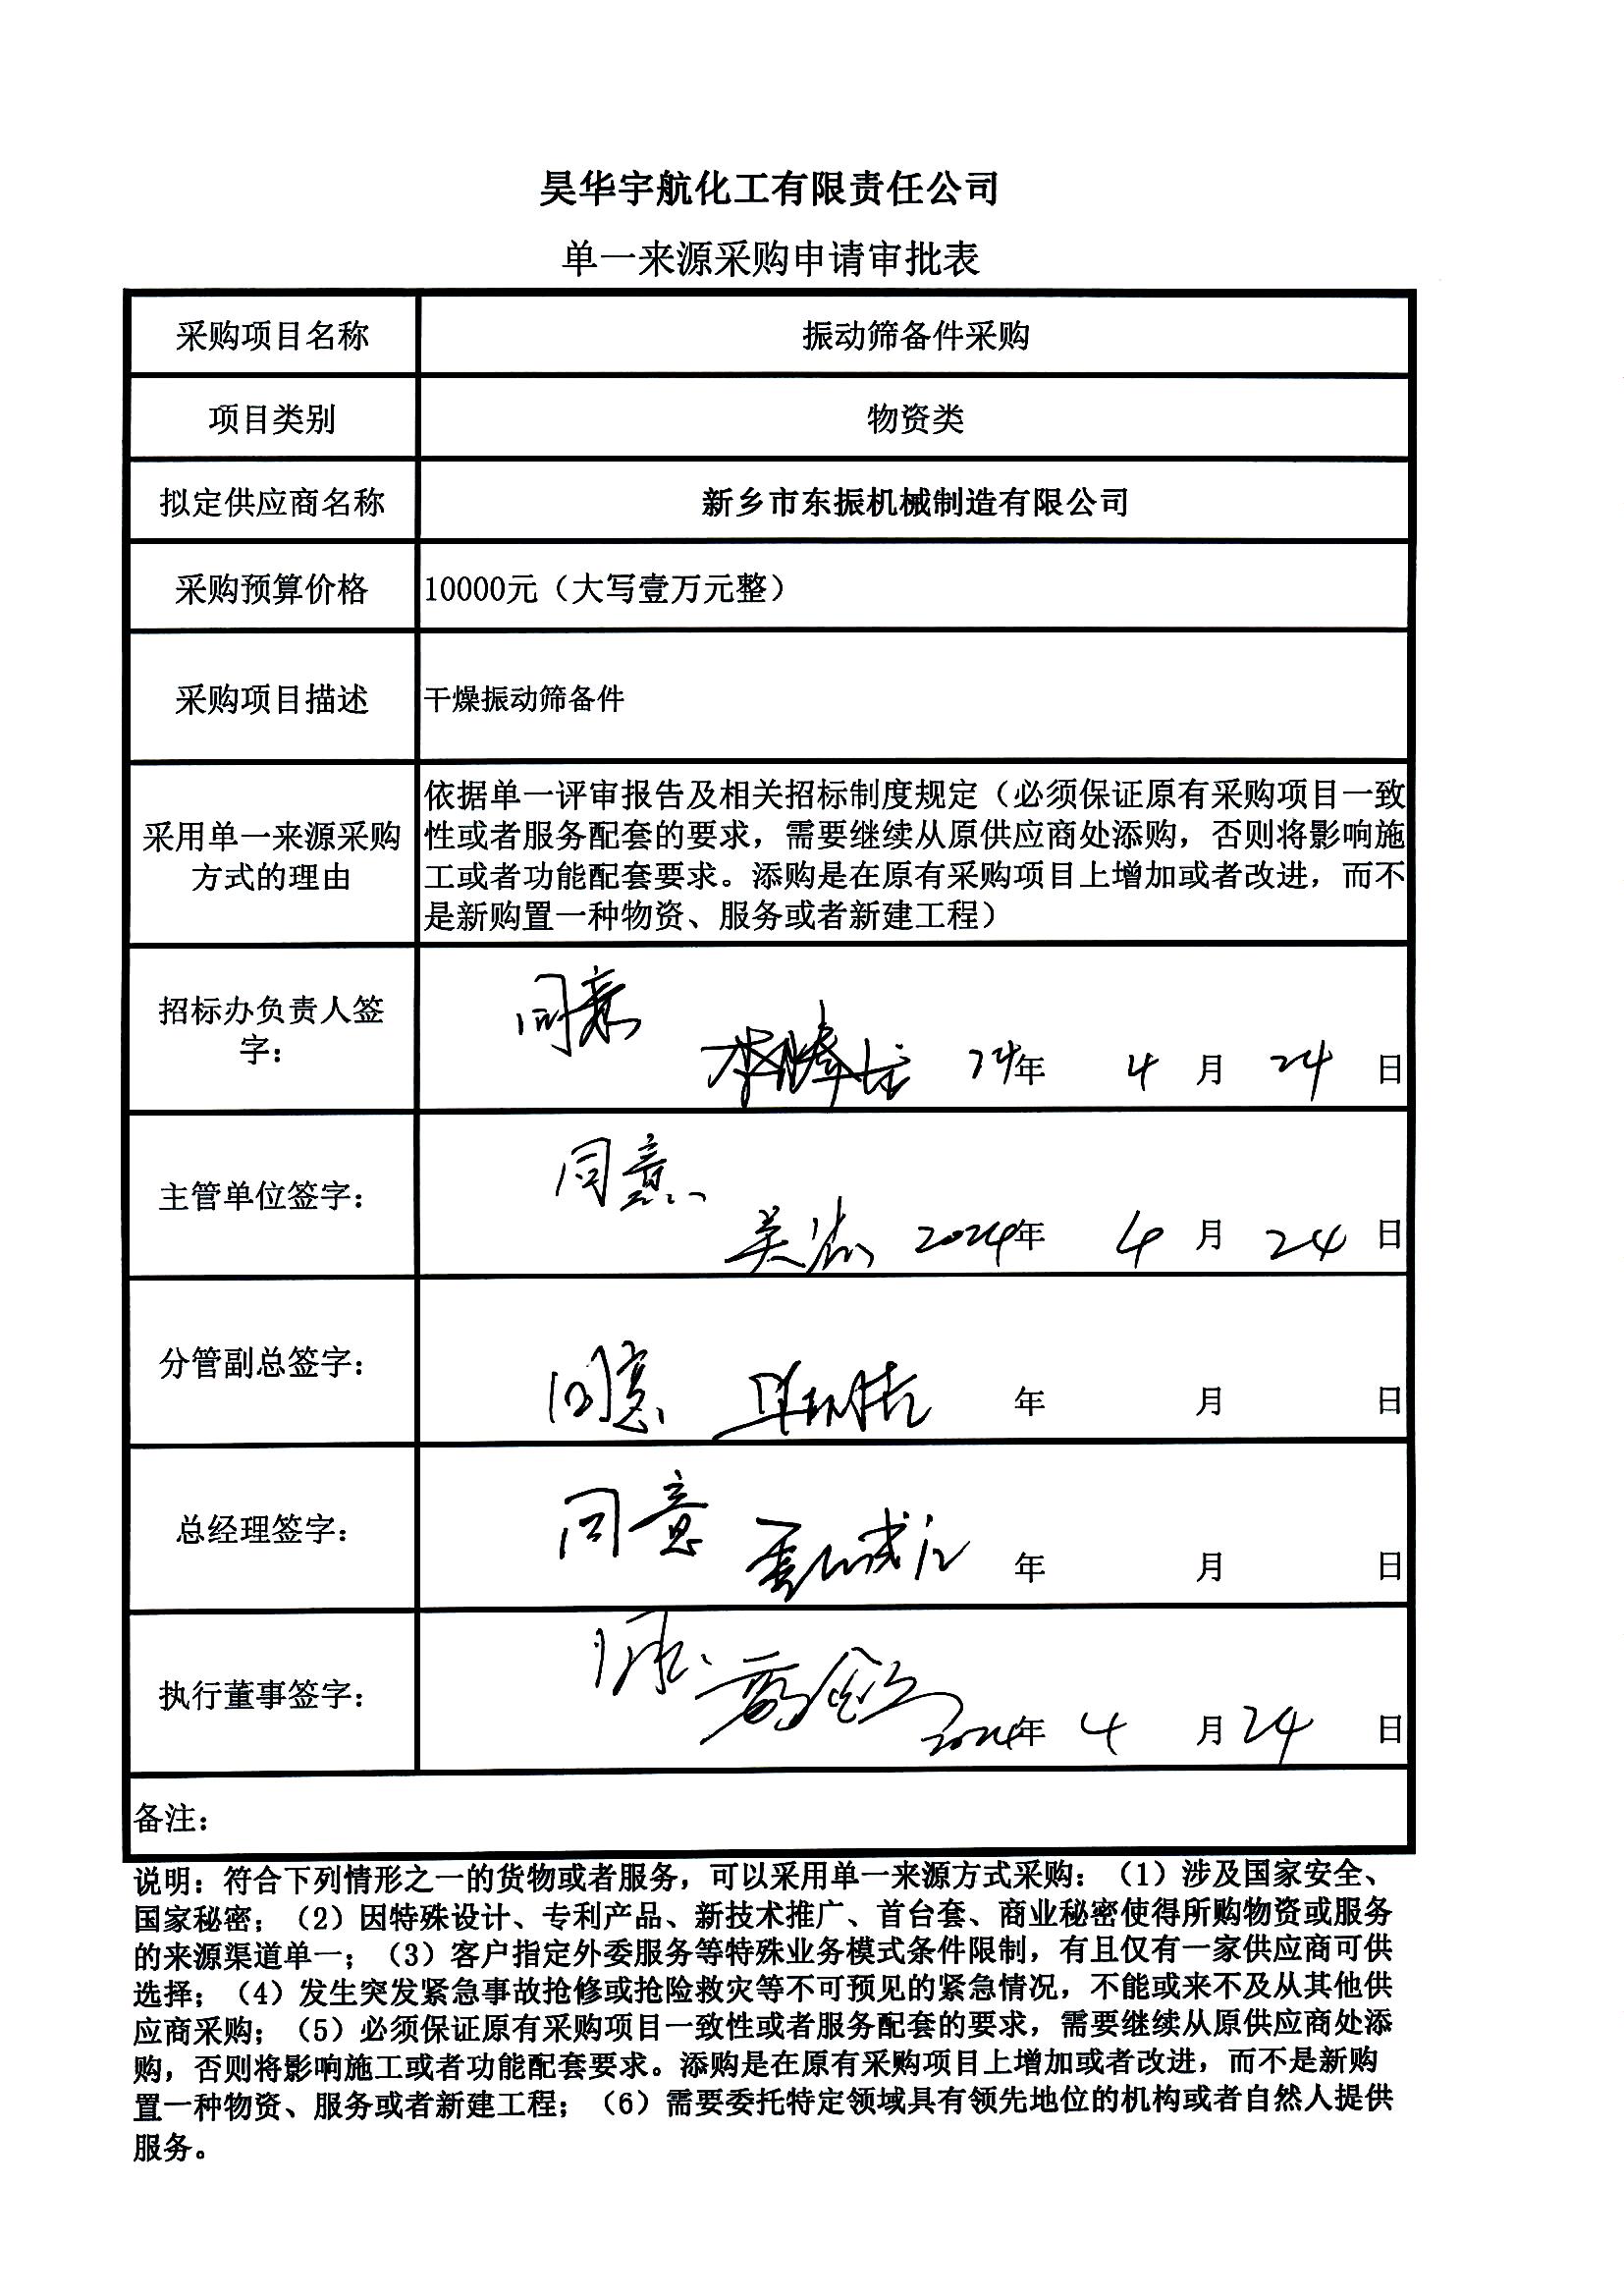 昊华宇航化工有限责任公司
单一来源采购申请审批表
采购项目名称
振动筛备件采购
项目类别
物资类
拟定供应商名称
新乡市东振机械制造有限公司
采购预算价格
10000元（大写壹万元整）
采购项目描述
干燥振动筛备件
采用单一来源采购
方式的理由
依据单一评审报告及相关招标制度规定（必须保证原有采购项目一致
性或者服务配套的要求，需要继续从原供应商处添购，否则将影响施
工或者功能配套要求。添购是在原有采购项目上增加或者改进，而不
是新购置一种物资、服务或者新建工程）
招标办负责人签
字：
同意
24年 4 月 24 日
主管单位签字：
同意
2024年 4 月 24 日
分管副总签字：
同意
年 月 日
总经理签字：
同意
年 月 日
执行董事签字：
2024年 4 月 24 日
备注：
说明：符合下列情形之一的货物或者服务，可以采用单一来源方式采购：（1）涉及国家安全、
国家秘密；（2）因特殊设计、专利产品、新技术推广、首台套、商业秘密使得所购物资或服务
的来源渠道单一；（3）客户指定外委服务等特殊业务模式条件限制，有且仅有一家供应商可供
选择；（4）发生突发紧急事故抢修或抢险救灾等不可预见的紧急情况，不能或来不及从其他供
应商采购；（5）必须保证原有采购项目一致性或者服务配套的要求，需要继续从原供应商处添
购，否则将影响施工或者功能配套要求。添购是在原有采购项目上增加或者改进，而不是新购
置一种物资、服务或者新建工程；（6）需要委托特定领域具有领先地位的机构或者自然人提供
服务。